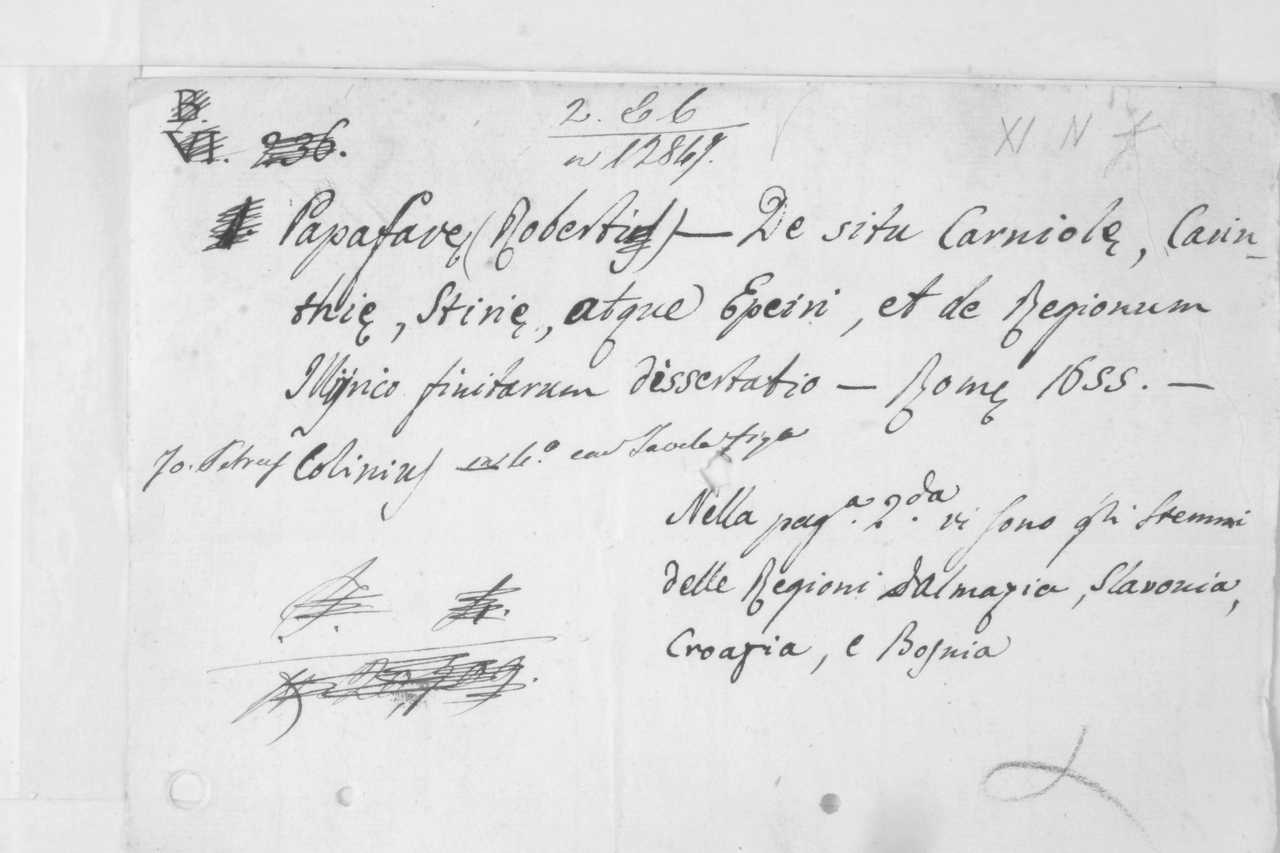 B.
VII. 236.
2. & 6
n 12847.
XI N
1. Papafavę (Robertiuſ) — De situ Carniolę, Carin-
thię, Stirię, atque Epeiri, et de Regionum
Illÿrico finitarum dissertatio — Romę 1655. —
Jo. Petruſ Coliniuſ in 4.o con Tavola fig.a
Nella pag.a 2.da vi ſono gli Stemmi
delle Regioni Dalmazia, Slavonia,
Croazia, e Boſnia